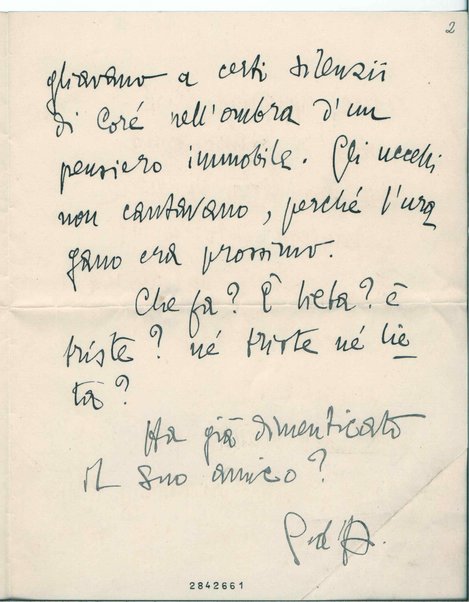 2
gliavano a certi silenzii
di Coré nell'ombra d'un
pensiero immobile. Gli uccelli
non cantavano, perché l'ura
gano era prossimo.
Che fa? È lieta? è
triste? né triste né lie
ta?
Ha già dimenticato
il suo amico?
2842661